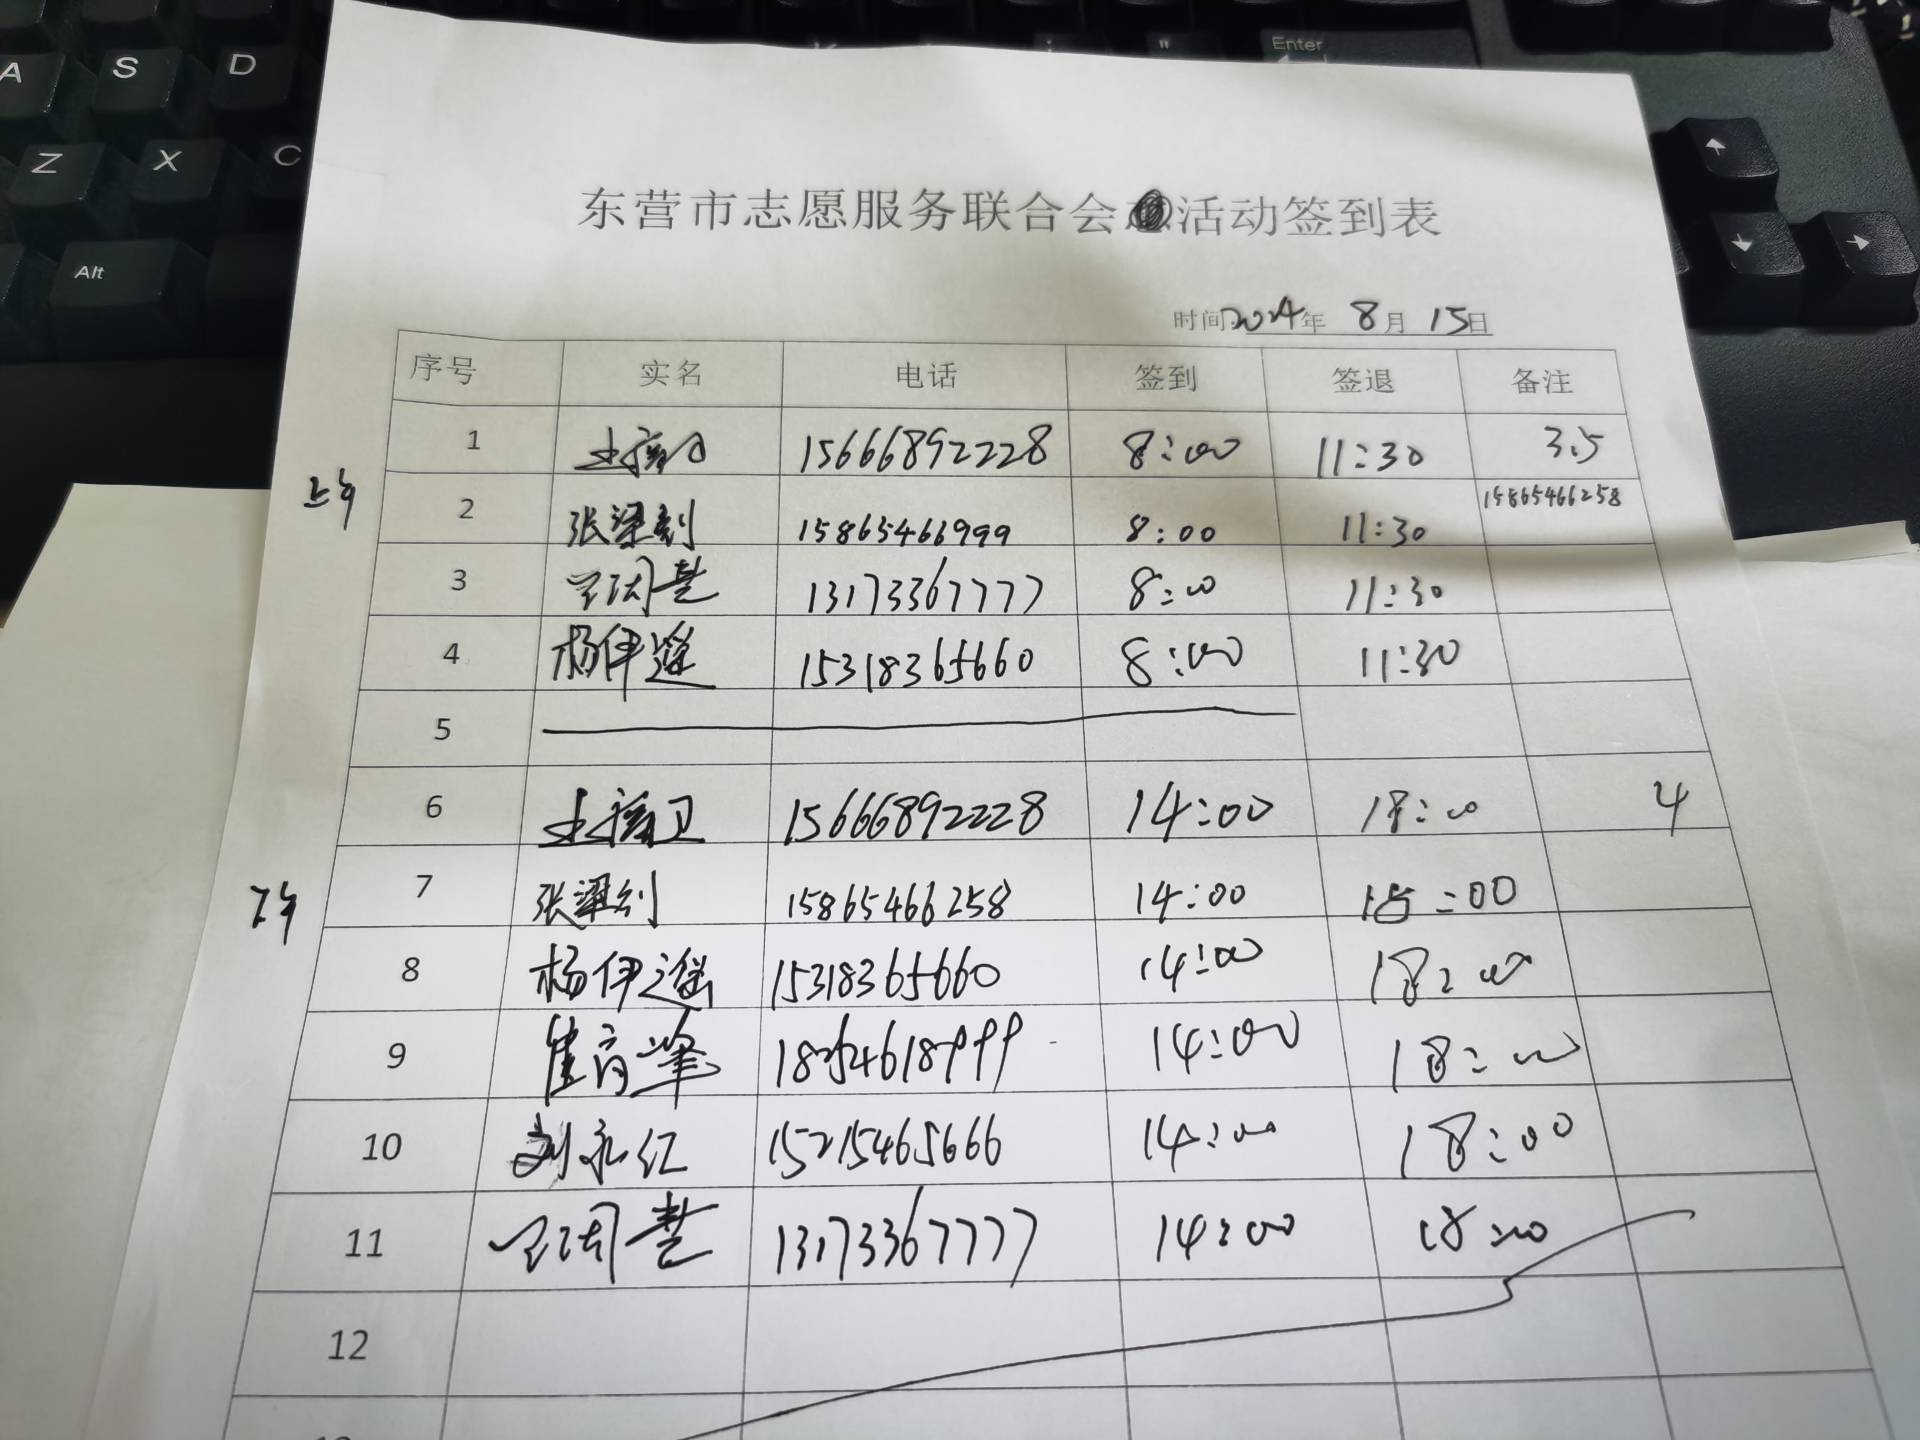 A S D
Enter
Z X C
Alt
东营市志愿服务联合会 活动签到表
时间 2024年 8月 15日
序号 实名 电话 签到 签退 备注
上午
1 15666892228 8:00 11:30 3.5
2 张梁刻 15865466999 8:00 11:30 15865466258
3 13173367777 8:00 11:30
4 杨伊遥 15318365660 8:00 11:30
5
下午
6 15666892228 14:00 18:00 4
7 张梁刻 15865466258 14:00 18:00
8 杨伊遥 15318365660 14:00 18:00
9 崔育峰 14:00 18:00
10 刘永仁 15215465666 14:00 18:00
11 13173367777 14:00 18:00
12